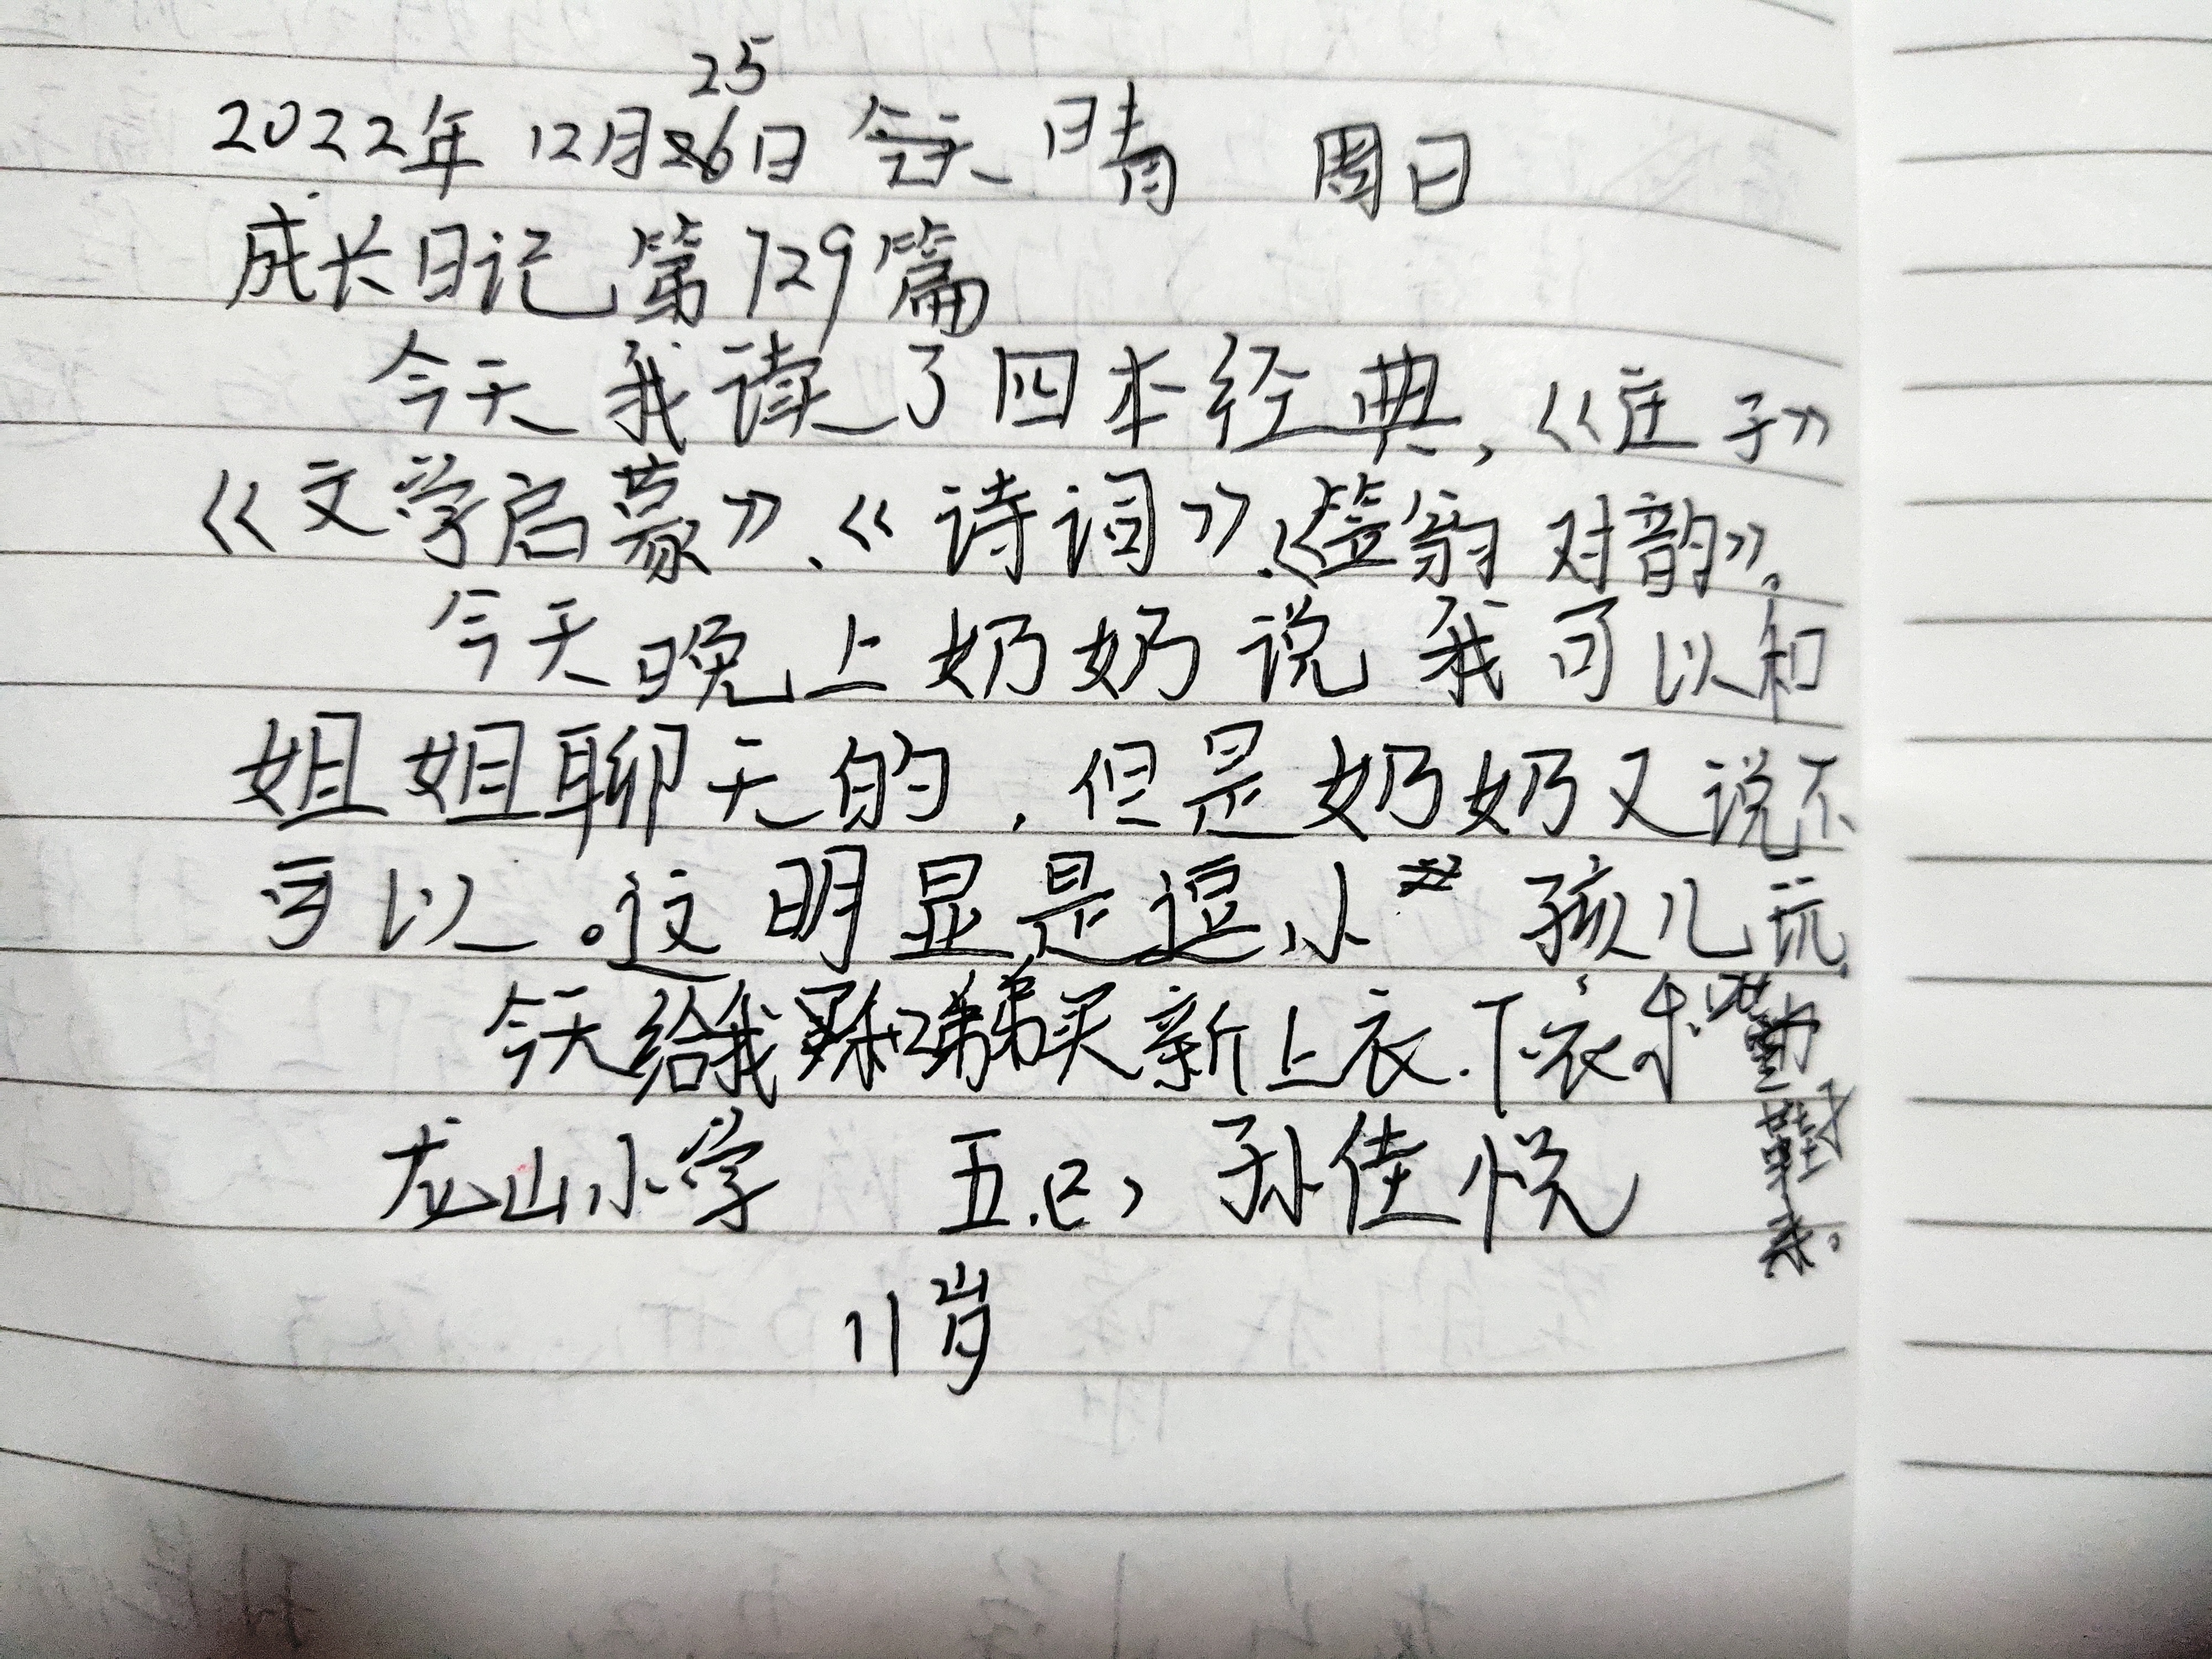 25
2022年 12月26日 今天 晴 周日
成长日记 第729篇
今天我读了四本经典，《庄子》
《文学启蒙》、《诗词》、《笠翁对韵》。
今天晚上奶奶说我可以和
姐姐聊天的，但是奶奶又说不
可以。这明显是逗小孩儿玩
今天给我弟弟买新上衣.下衣
龙山小学 五.(2) 孙佳悦
11岁